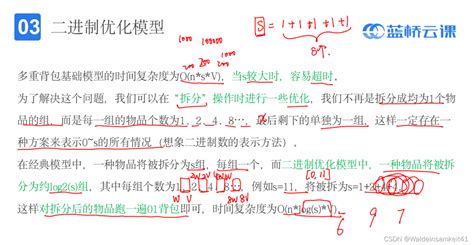 03 二进制优化模型
S = 1+1+1+1+1
蓝桥云课
多重背包基础模型的时间复杂度为O(n*s*V),当s较大时,容易超时。
为了解决这个问题,我们可以在“拆分”操作时进行一些优化,我们不再是拆分成均为1个物
品的组,而是每一组的物品个数为1、2、4、8…,最后剩下的单独为一组,这样一定存在一
种方案来表示0~s的所有情况(想象二进制数的表示方法)。
在经典模型中,一种物品将被拆分为s组,每组一个,而二进制优化模型中,一种物品将被拆
分为约log2(s)组,其中每组个数为1、2、4、8…,例如s=11,将被拆分为s=1+2+4+4
这样对拆分后的物品跑一遍01背包即可,时间复杂度为O(n*log(s)*V)。
6 9 7
CSDN @Waldeinsamkeit41